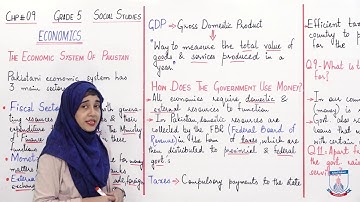 CHP # 09 GRADE 5 SOCIAL STUDIES
ECONOMICS
THE ECONOMIC SYSTEM OF PAKISTAN
Pakistani economic system has
3 main sector
• Fiscal Sec
ating resources
expenditure
of finance
• Monet
matters
• External
exchange
with gener
and their
The Ministry
these
for money
trade, foreign
GDP → Gross Domestic Product
• Way to measure the total value of
goods & services produced in a
year.
HOW DOES THE GOVERNMENT USE MONEY?
• All economies require domestic &
external resources to function
• In Pakistan, domestic resources are
collected by the FBR (Federal Board of
Revenue) in the form of taxes, which are
then distributed to provincial & federal
govt.s
Taxes → Compulsory payments to the state
Efficient tax
country to p
for the
Q. What is
for?
• In our
(money) is
• Govt also
loans that
with certain
Q. Apart f
the govt. rai